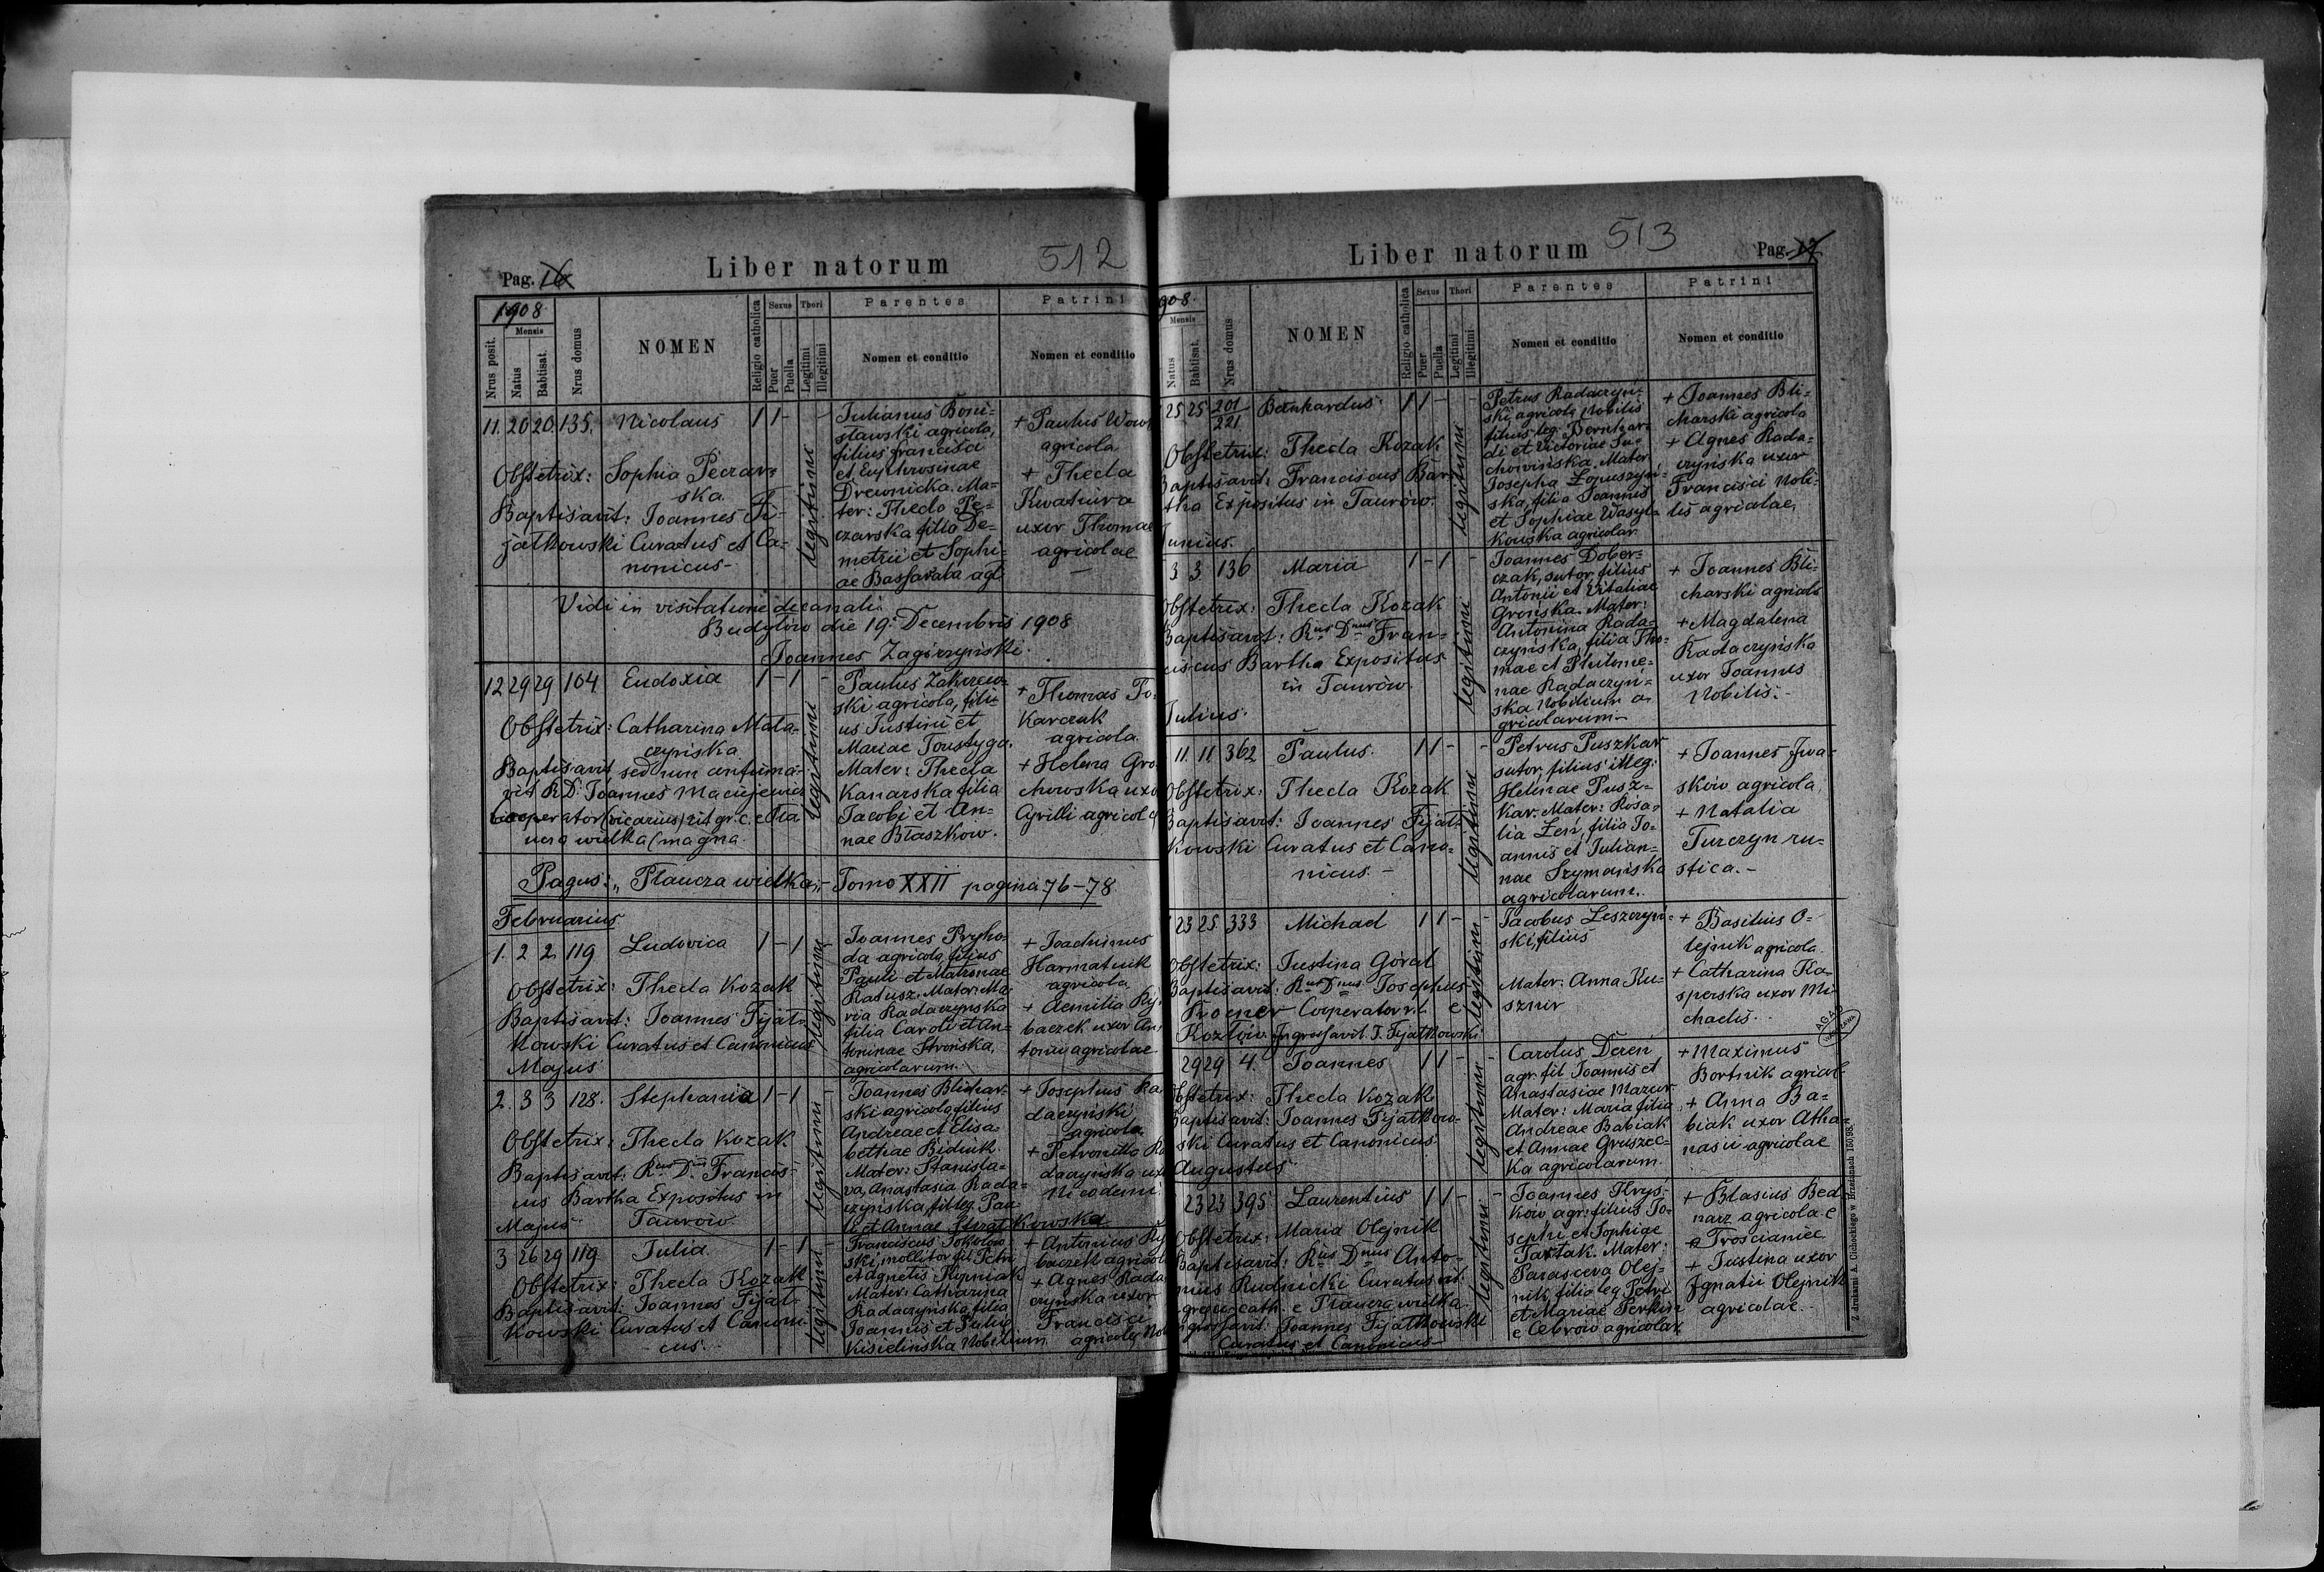 Pag. 16
Liber natorum
512
1908
Mensis
Nrus posit.
Natus
Babtisat.
Nrus domus
NOMEN
Religio catholica
Sexus
Puer
Puella
Thori
Legitimi
Illegitimi
Parentes
Nomen et conditio
Patrini
Nomen et conditio
11. 20 20. 135. Nicolaus 1 1 - -
Obstetrix: Sophia Peczar=
ska
Baptisavit: Joannes Fi=
jałkowski Curatus et Ca=
nonicus -
legitimi
Julianus Boni=
sławski agricola,
filius Francisci
et Euphrosinae
Drewnicka. Ma=
ter: Thecla Pe=
czarska filia De=
metrii et Sophi=
ae Bassaraba agr.
+ Paulus
agricola
+ Thecla
Kwatyra
uxor Thomae
agricolae
Vidi in visitatione decanali
Budyłów die 19. Decembris 1908
Joannes Zagórzyński.
12 29 29 104 Eudoxia 1 - 1 -
Obstetrix: Catharina Mata=
czyńska
Baptisavit sed non confirma=
vit R.D. Joannes Maciejewicz
Cooperator (vicarius) rit. gr. c. e Pła
ucza wielka (magna.
legitimi
Paulus Zakrzew=
ski agricola, fili=
us Justini et
Mariae Toustyga.
Mater: Thecla
Kanarska filia
Jacobi et An=
nae Błaszków.
+ Thomas To=
karczuk
agricola.
+ Helena Gro
chowska uxo
Cyrilli agricol
Pagus: „Płaucza wielka" - Tomo XXII pagina 76-78
Februarius
1. 2 2 119 Ludovica 1 - 1 -
Obstetrix: Thecla Kozak
Baptisavit: Joannes Fijał=
kowski Curatus et Canonicus
legitimi
Joannes Pryho=
da agricola, filius
Pauli et Matronae
Ratusz. Mater: Ma=
ria Radaczyńska
filia Caroli et An=
toninae Strońska,
agricolarum.
+ Joachimus
Harmatiuk
agricola
+ Aemilia Ry
baczek uxor An
tonii agricolae
Majus
2. 3 3 128. Stephania 1 - 1 -
Obstetrix: Thecla Kozak.
Baptisavit: Rus Dnus Francis=
cus Bartha Expositus in
Taurów.
legitimi
Joannes Blichar=
ski agricola, filius
Andreae et Elisa=
bethae Bidiuk.
Mater: Stanisla=
va, Anastasia Rada=
czyńska, fil. leg. Pau
li et Annae
+ Josephus Ra
daczyński
agricola.
+ Petronilla Ra
daczyńska uxo
Nicodemi
Majus
3 26 29 119 Julia 1 - 1 -
Obstetrix: Thecla Kozak
Baptisavit: Joannes Fijał=
kowski Curatus et Canoni=
cus.
legitimi
Franciscus Sokołow=
ski, mollitor fil. Petri
et Agnetis Rypniak
Mater: Catharina
Radaczyńska, filia
Joannis et Julia
Kisielińska Nobilium
+ Antonius Ry
baczek agricola
+ Agnes Rada
czyńska uxor
Francisci
agricolae Nob
Liber natorum
513
Pag. 17
908.
Mensis
Natus
Babtisat.
Nrus domus
NOMEN
Religio catholica
Sexus
Puer
Puella
Thori
Legitimi
Illegitimi
Parentes
Nomen et conditio
Patrini
Nomen et conditio
25 25 201/221 Bernhardus 1 1 - -
Obstetrix: Thecla Kozak
Baptisavit: Franciscus Bar=
tha Expositus in Taurów.
legitimi
Petrus Radaczyń=
ski, agricola Nobilis
filius leg. Bernhar=
di et Victoriae Su=
chowińska. Mater
Josepha Łopuszyń=
ska, filia Joannis
et Sophiae Wasyl=
kowska agricolar.
+ Joannes Bli=
charski agricola
+ Agnes Rada=
czyńska uxor
Francisci Nobi=
lis agricolae,
Junius.
3 3 136 Maria 1 - 1 -
Obstetrix: Thecla Kozak
Baptisavit: Rus Dnus Fran=
ciscus Bartha Expositus
in Taurów.
legitimi
Joannes Dober=
czak, sutor, filius
Antonii et Vitaliae
Grońska. Mater:
Antonina Rada=
czyńska, filia Tho=
mae et Philome=
nae Radaczyń=
ska Nobilium a=
gricolarum -
+ Joannes Bli=
charski agricola
+ Magdalena
Radaczyńska
uxor Joannis
Nobilis. -
Julius.
11 11 362 Paulus. 1 1 - -
Obstetrix: Thecla Kozak
Baptisavit: Joannes Fijał=
kowski Curatus et Cano=
nicus. -
legitimi
Petrus Puszkar
sutor, filius illeg.
Helenae Pusz=
kar. Mater: Rosa=
lia Zeń, filia Jo=
annis et Julian=
nae Szymańska
agricolarum.
+ Joannes Iwa=
sków agricola,
+ Natalia
Turczyn ru=
stica. -
23 25 333 Michael 1 1 - -
Obstetrix: Justina Góral
Baptisavit: Rus Dnus Josephus
Trocner Cooperator r.l. e
Kozłów. Ingrossavit J. Fijałkowski
legitimi
Jacobus Leszczyń=
ski, filius
Mater: Anna Ku=
sznir
+ Basilius O=
lejnik agricola.
+ Catharina Ka=
sperska uxor Mi
chaelis.
29 29 4. Joannes 1 1 - -
Obstetrix: Thecla Kozak
Baptisavit: Joannes Fijałkow=
ski Curatus et Canonicus.
legitimi
Carolus Dereń
agr. fil Joannis et
Anastasiae Mazur.
Mater: Maria filia
Andreae Babiak
et Annae Gruszec=
ka agricolarum.
+ Maximus
Bortnik agricol
+ Anna Ba=
biak uxor Atha=
nasii agricolae
Augustus
23 23 395 Laurentius 1 1 - -
Obstetrix: Maria Olejnik
Baptisavit: Rus Dnus Anto=
nius Rudnicki Curatus rit.
graeco-cath. e Płaucza wielka.
Ingrossavit: Joannes Fijałkowski
Curatus et Canonicus
legitimi
Joannes Hryś=
ków agr. filius Jo=
sephi et Sophiae
Tartak. Mater:
Parascevia Olej=
nik, filia leg. Petri
et Mariae Perkin
e Cebrów agricolar.
+ Blasius Bed
narz agricola e
Trościaniec
+ Justina uxor
Ignatii Olejnik
agricolae.
AGAD
WARSZAWA
Z drukarni A. Cichockiego w Brzeżanach 150/98.